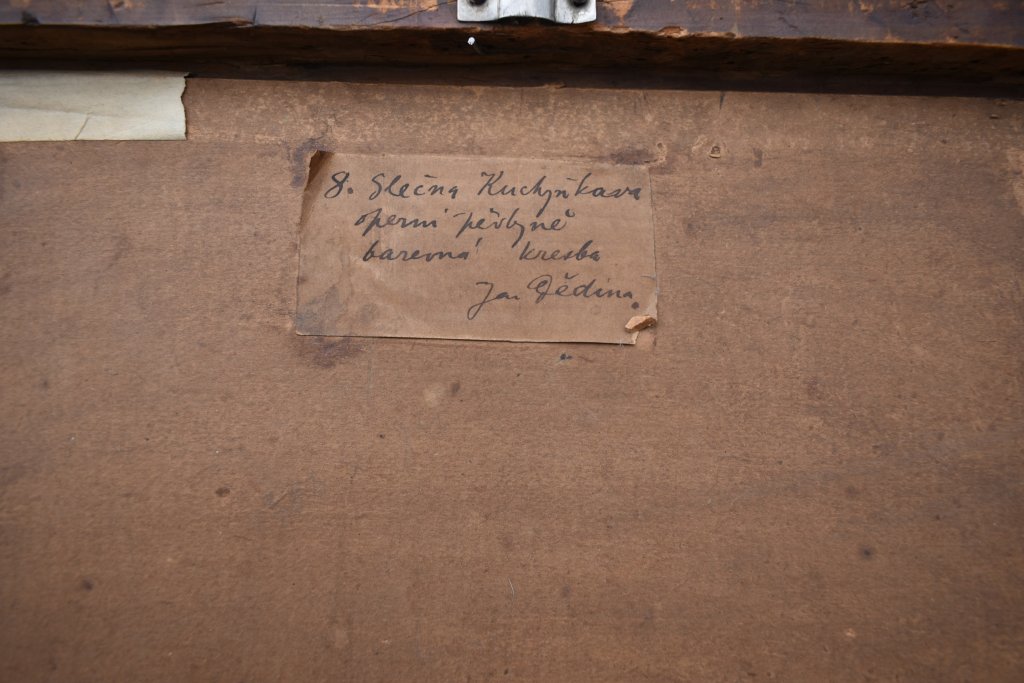 8. Slečna Kuchyňkava
operní pěvkyně
barevná kresba
Jan Dědina.